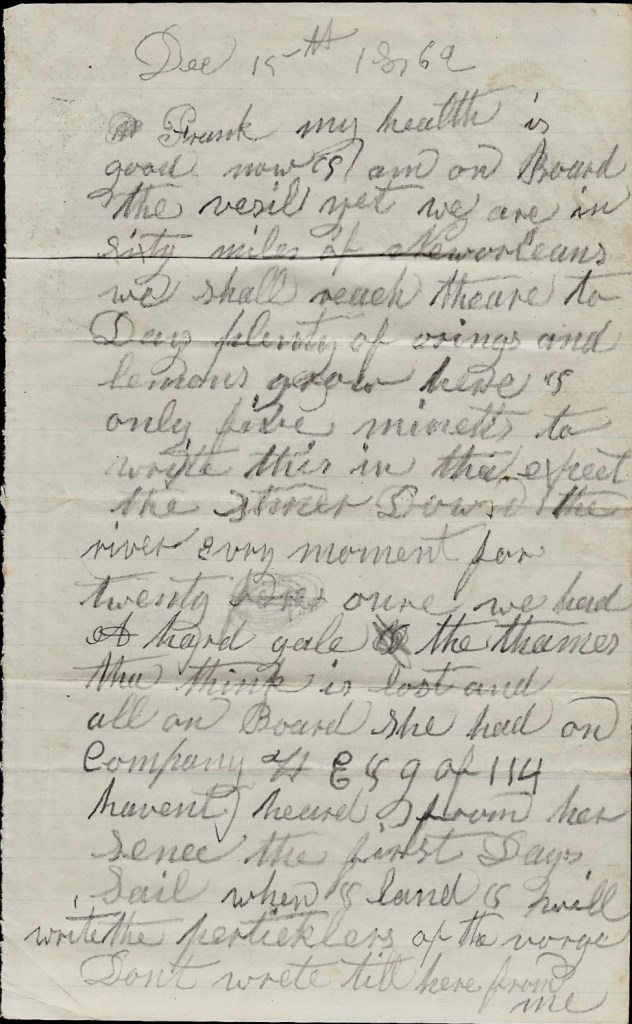 Dec 15th 1862
Frank my health is
good now I am on Board
the vesil yet we are in
sixty miles of Neworleans
we shall reach theare to
Day plenty of orings and
lemons grow here I
only five minetts to
write this in tha expect
the stmer Down the
river Evry moment for
twenty oure we had
A hard gale the thames
tha think is lost and
all on Board she had on
Company H E & G of 114
havent heard from her
sence the first Days
Sail when I land I will
write the perticklers of the vorge
Dont wrete till here from
me